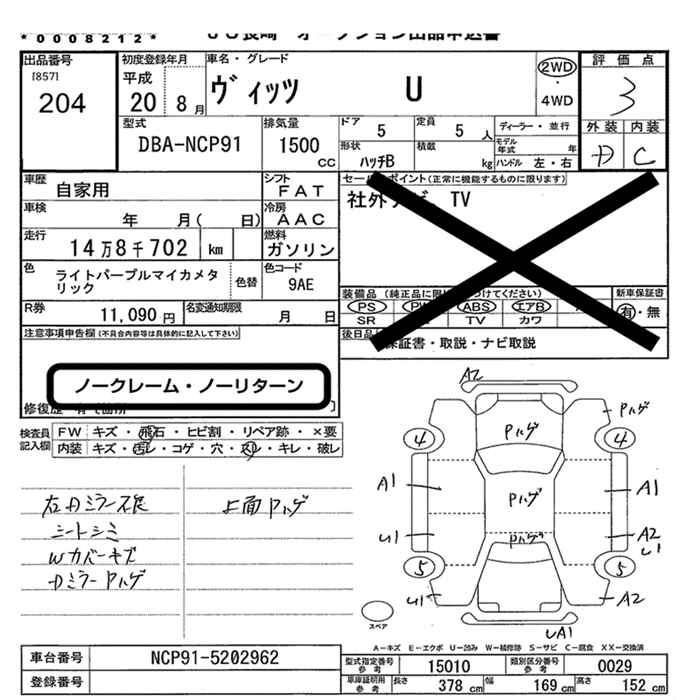 *0008212*
JU長崎 オークション出品申込書
出品番号
[857]
204
初度登録年月
平成
20 8月
車名・グレード
ヴィッツ U
2WD
・
4WD
評価点
3
外装 内装
D C
型式
DBA-NCP91
排気量
1500 CC
ドア 5
定員 5 人
形状 ハッチB
積載 kg
ディーラー・並行
モデル年式 年
ハンドル 左・右
車歴
自家用
シフト
FAT
車検
年 月( 日)
冷房
AAC
走行
14万8千702 km
燃料
ガソリン
色
ライトパープルマイカメタリック
色替
色コード
9AE
R券
11,090円
名変通知期限
月 日
セールスポイント(正常に機能するものに限ります)
社外ナビ TV
装備品(純正品に限 つけてください)
PS PW ABS エアB
SR TV カワ
新車保証書
有・無
後日品
保証書・取説・ナビ取説
注意事項申告欄(不具合内容等は具体的に記入して下さい)
ノークレーム・ノーリターン
修復歴 有
検査員記入欄
FW キズ・飛石・ヒビ割・リペア跡・×要
内装 キズ・汚レ・コゲ・穴・スレ・キレ・破レ
左Dミラー不良
シートシミ
Wカバーキズ
Dミラー Pハゲ
上面 Pハゲ
A2
Pハゲ
Pハゲ
4
4
A1
Pハゲ
A1
U1
Pハゲ
A2
U1
5
5
U1
A2
UA1
スペア
A-キズ E-エクボ U-凹み W-補修跡 S-サビ C-腐食 XX-交換済
車台番号
NCP91-5202962
登録番号
型式指定番号 参考
15010
類別区分番号 参考
0029
車庫証明用 参考
長さ 378 cm
幅 169 cm
高さ 152 cm